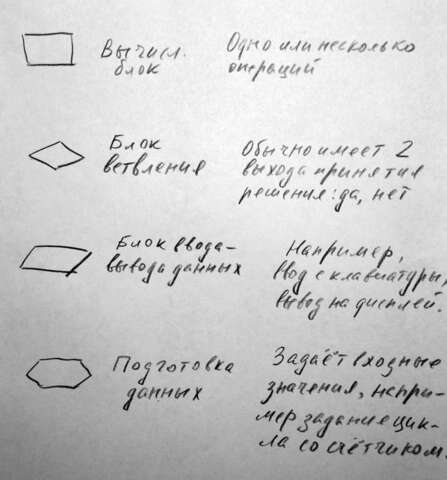 Вычисл. Одно или несколько
блок операций
Блок Обычно имеет 2
ветвления выхода принятия
решения: да, нет
Блок ввода- Например,
вывода данных ввод с клавиатуры,
вывод на дисплей.
Подготовка Задаёт входные
данных значения, напри-
мер задание цик-
ла со счётчиком.